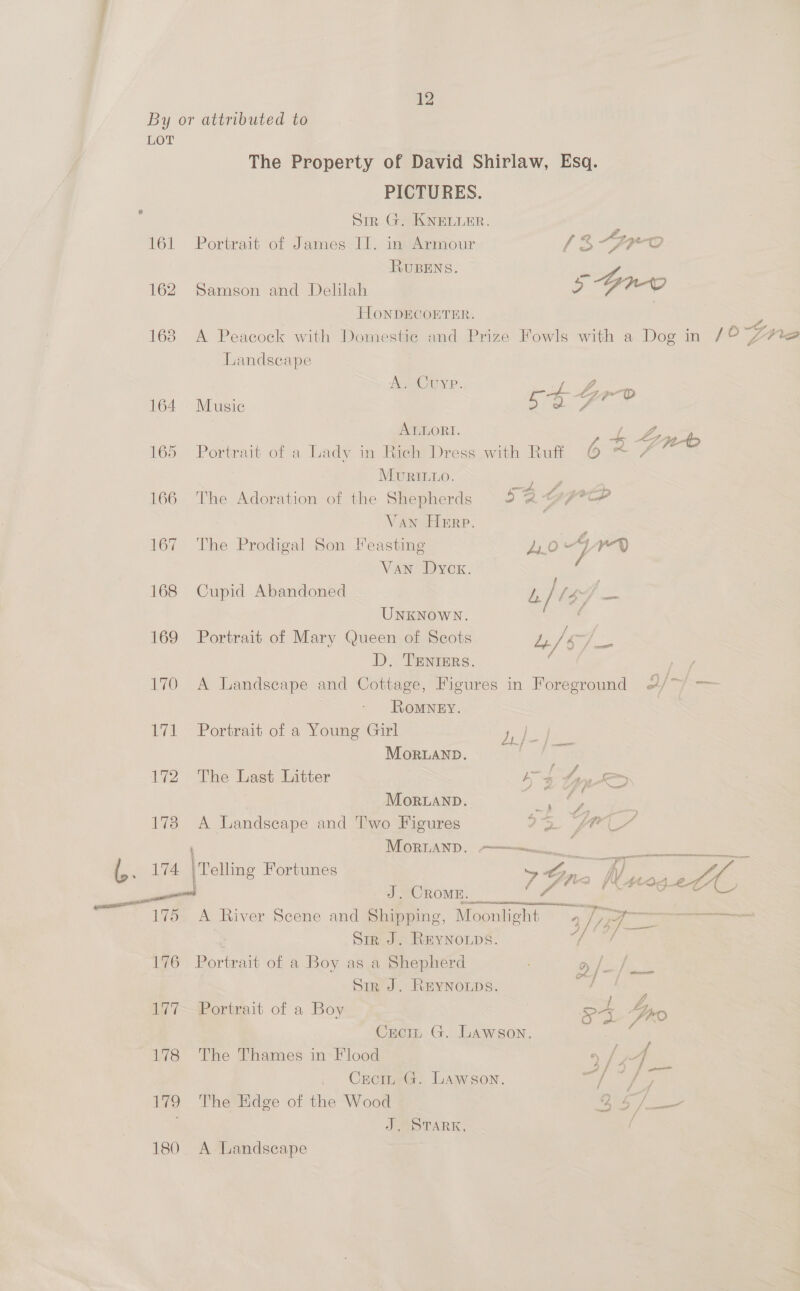 12
By or attributed to
LOT
The Property of David Shirlaw, Esq.
PICTURES.
SIR G. KNELLER.
161 Portrait of James II. in Armour 13 Gns
RUBENS.
162 Samson and Delilah 5 Gns
HONDECOETER.
163 A Peacock with Domestic and Prize Fowls with a Dog in 10 Gns
Landscape
A. CUYP.
164 Music Gns
ALLORI.
165 Portrait of a Lady in Rich Dress with Ruff Gns
MURILLO.
166 The Adoration of the Shepherds Gns
VAN HERP.
167 The Prodigal Son Feasting Gns
VAN DYCK.
168 Cupid Abandoned 4/15/-
UNKNOWN.
169 Portrait of Mary Queen of Scots 4/5/-
D. TENIERS.
170 A Landscape and Cottage, Figures in Foreground 2/-/-
ROMNEY.
171 Portrait of a Young Girl 4/-/-
MORLAND.
172 The Last Litter Gns
MORLAND.
173 A Landscape and Two Figures Gns
MORLAND.
b. 174 Telling Fortunes 7 Gns
J. CROME.
175 A River Scene and Shipping, Moonlight 3/15/-
SIR J. REYNOLDS.
176 Portrait of a Boy as a Shepherd 2/-/-
SIR J. REYNOLDS.
177 Portrait of a Boy Gns
CECIL G. LAWSON.
178 The Thames in Flood
CECIL G. LAWSON.
179 The Edge of the Wood
J. STARK.
180 A Landscape